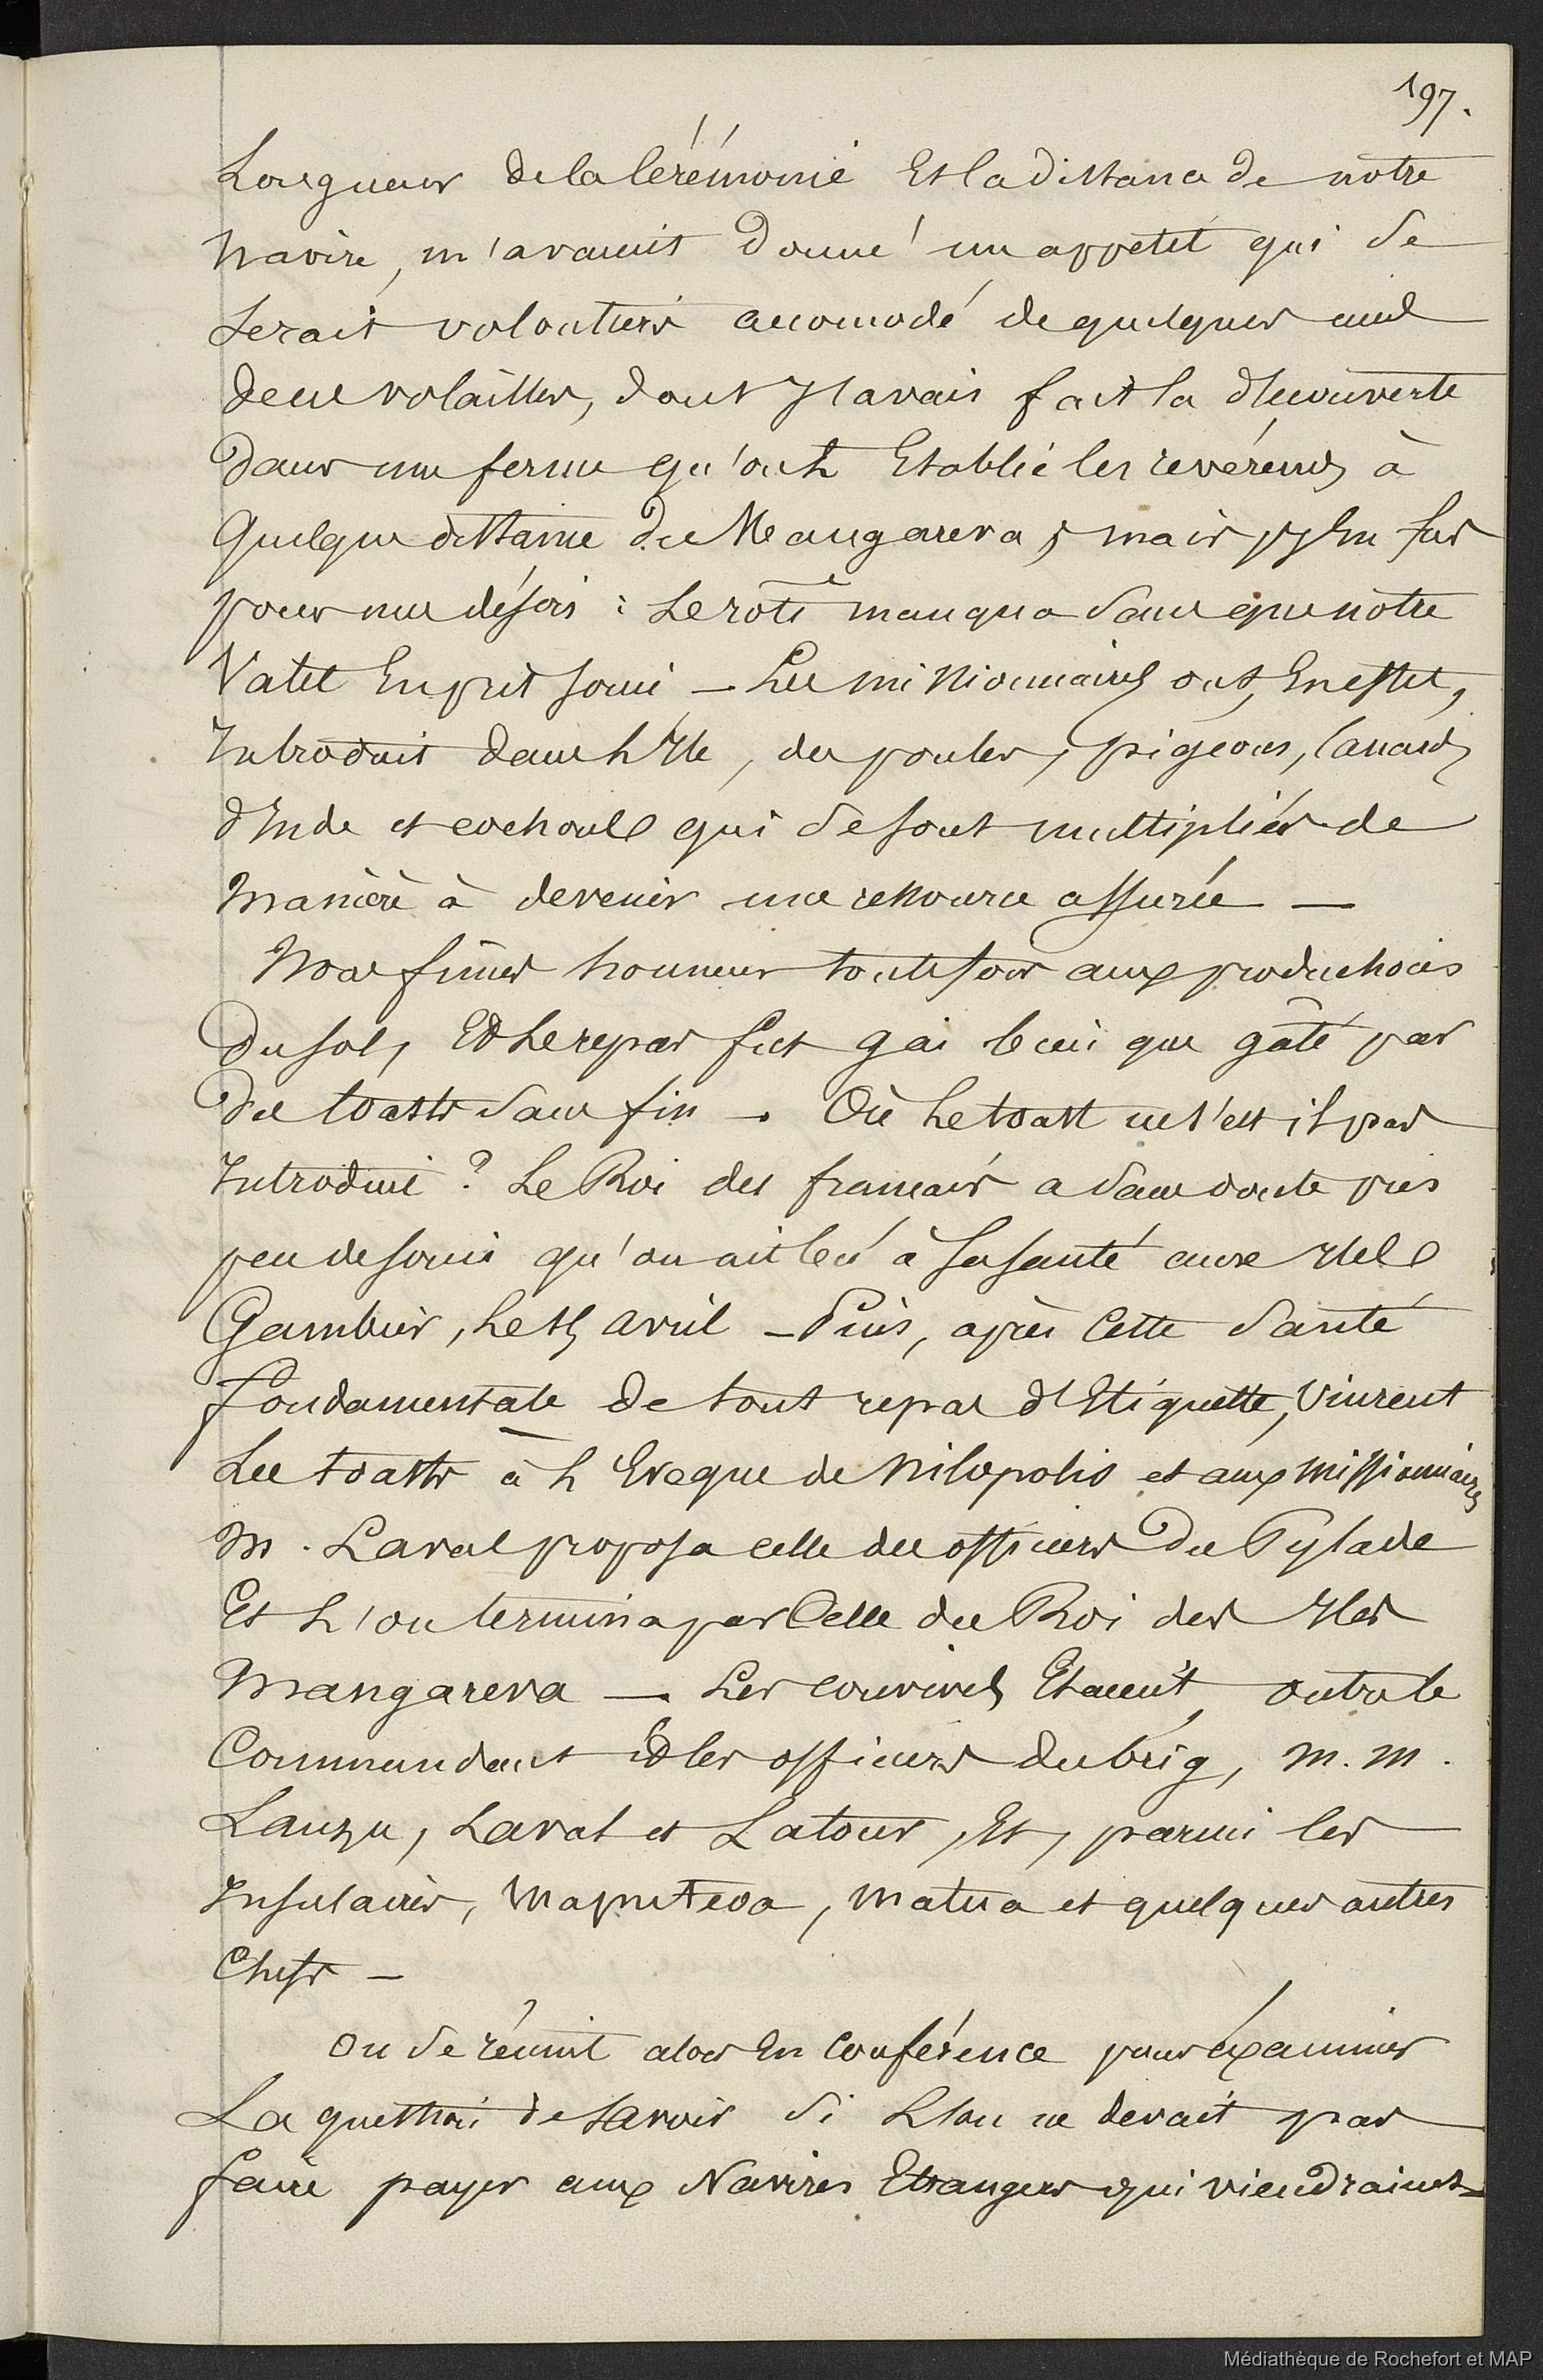 197.
Longueur de la Cérémonie Et la distance de notre
Navire, m'avaient donné un appetit qui se
Serait volontiers accomodé de quelques unes
des volailles, dont J'avais fait la découverte
dans une ferme qu'ont Etablie les révérends à
Quelque distance de Mangareva, mais j'En fus
pour mes désirs : Le rôti manqua sans que notre
Vatel En prit souci — Les missionnaires ont, En effet,
Introduit dans L'Ile, des poules, pigeons, Canards
d'Inde et cochons qui se sont multipliés de
Manière à devenir une ressource assurée —
Nous fimes honneur toutefois aux productions
du sol, Et Le repas fut gai bien que gâté par
des toasts sans fin — Où Le toast ne s'est il pas
Introduit ? Le Roi des français a sans doute pris
peu de souci qu'on ait bu à sa santé aux Iles
Gambier, Le avril — Puis, après Cette Santé
fondamentale de tout repas d'Etiquette, Vinrent
Les toasts à L'Eveque de Nilopolis et aux missionnaires
M. Laval proposa celle des officiers du Pylade
Et L'on termina par Celle du Roi des Iles
Mangareva — Les convives Etaient, outre le
Commandant Et les officiers du brig, M.M.
Lauzu, Laval et Latour, Et, parmi les
Insulaires, Maputeoa, Matua et quelques autres
Chefs —
On se réunit alors En Conférence pour Examiner
La question de savoir si L'on ne devait pas
faire payer aux Navires Etrangers qui viendraient
Médiathèque de Rochefort et MAP